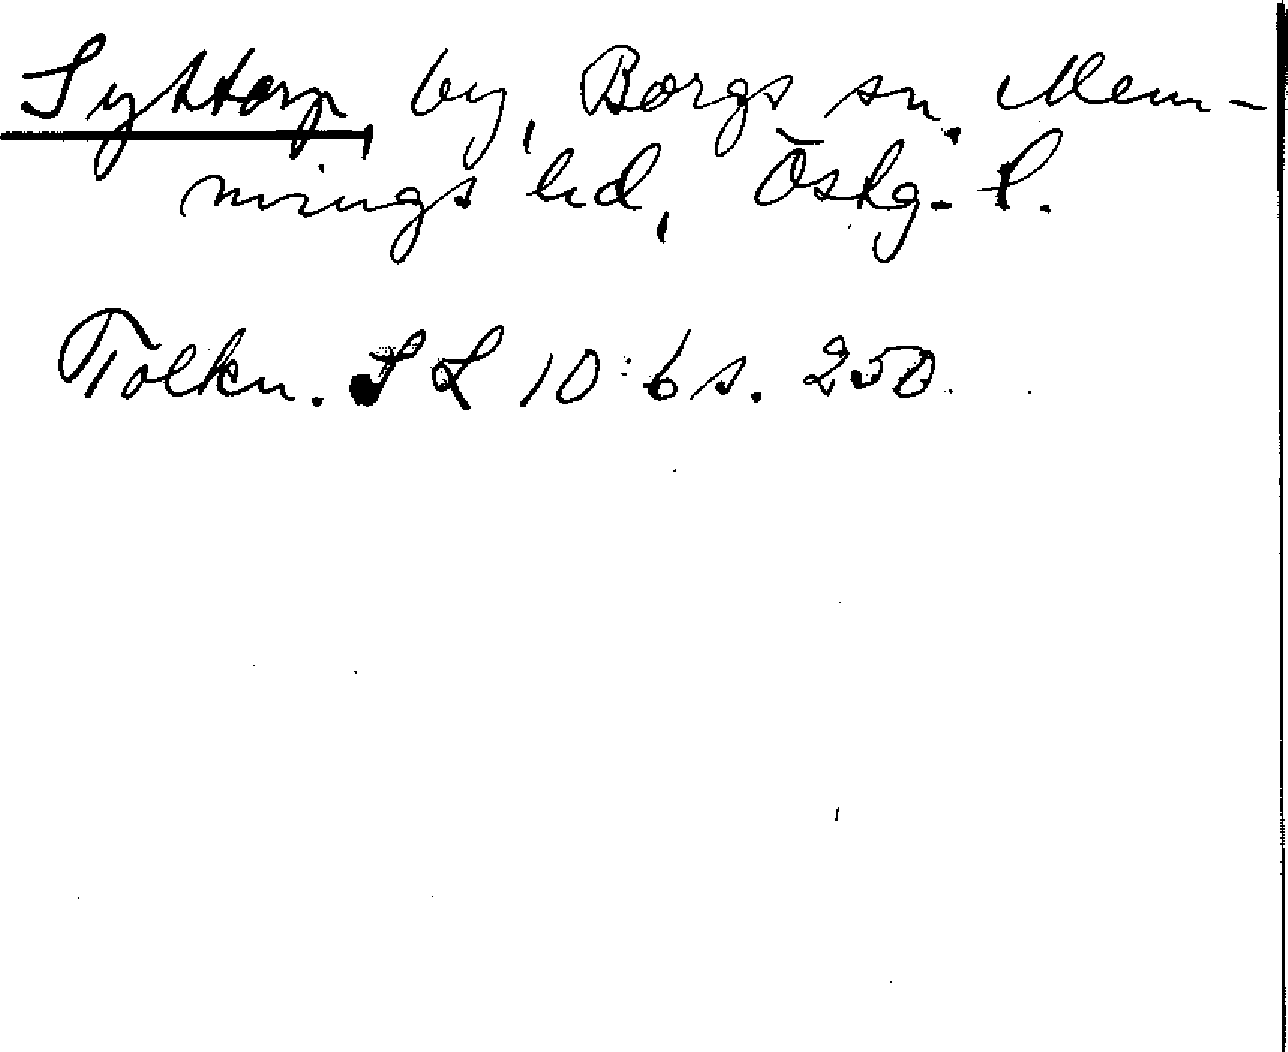 Syhtorp, by, Borgs sn. Mem-
mings hd, Östg. l.
Tolkn. SL 10:6 s. 250.